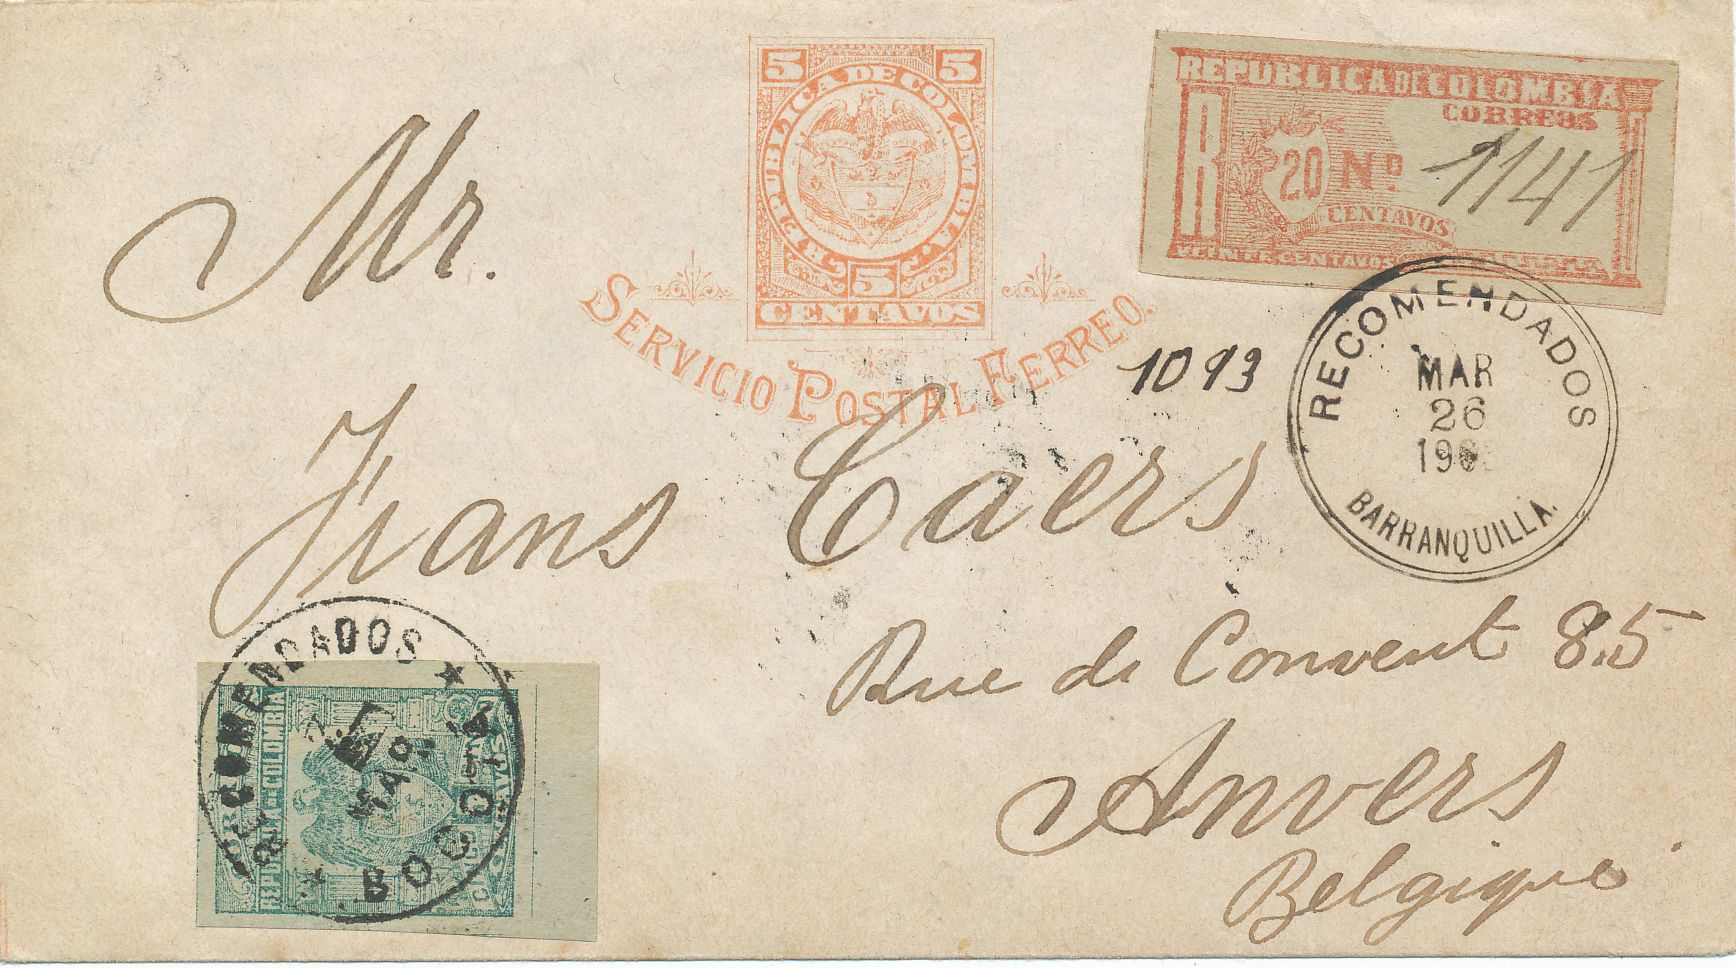 5 5
REPUBLICA DE COLOMBIA.
5
CENTAVOS
SERVICIO POSTAL FERREO.
REPUBLICA DE COLOMBIA
CORREOS
R 20 No. 1141
CENTAVOS
VEINTE CENTAVOS
1093
RECOMENDADOS
MAR
26
BARRANQUILLA.
Mr.
Frans Caers
Rue de Convent 85
Anvers
Belgique
RECOMENDADOS
BOGOTA
REPUBLICA DE COLOMBIA